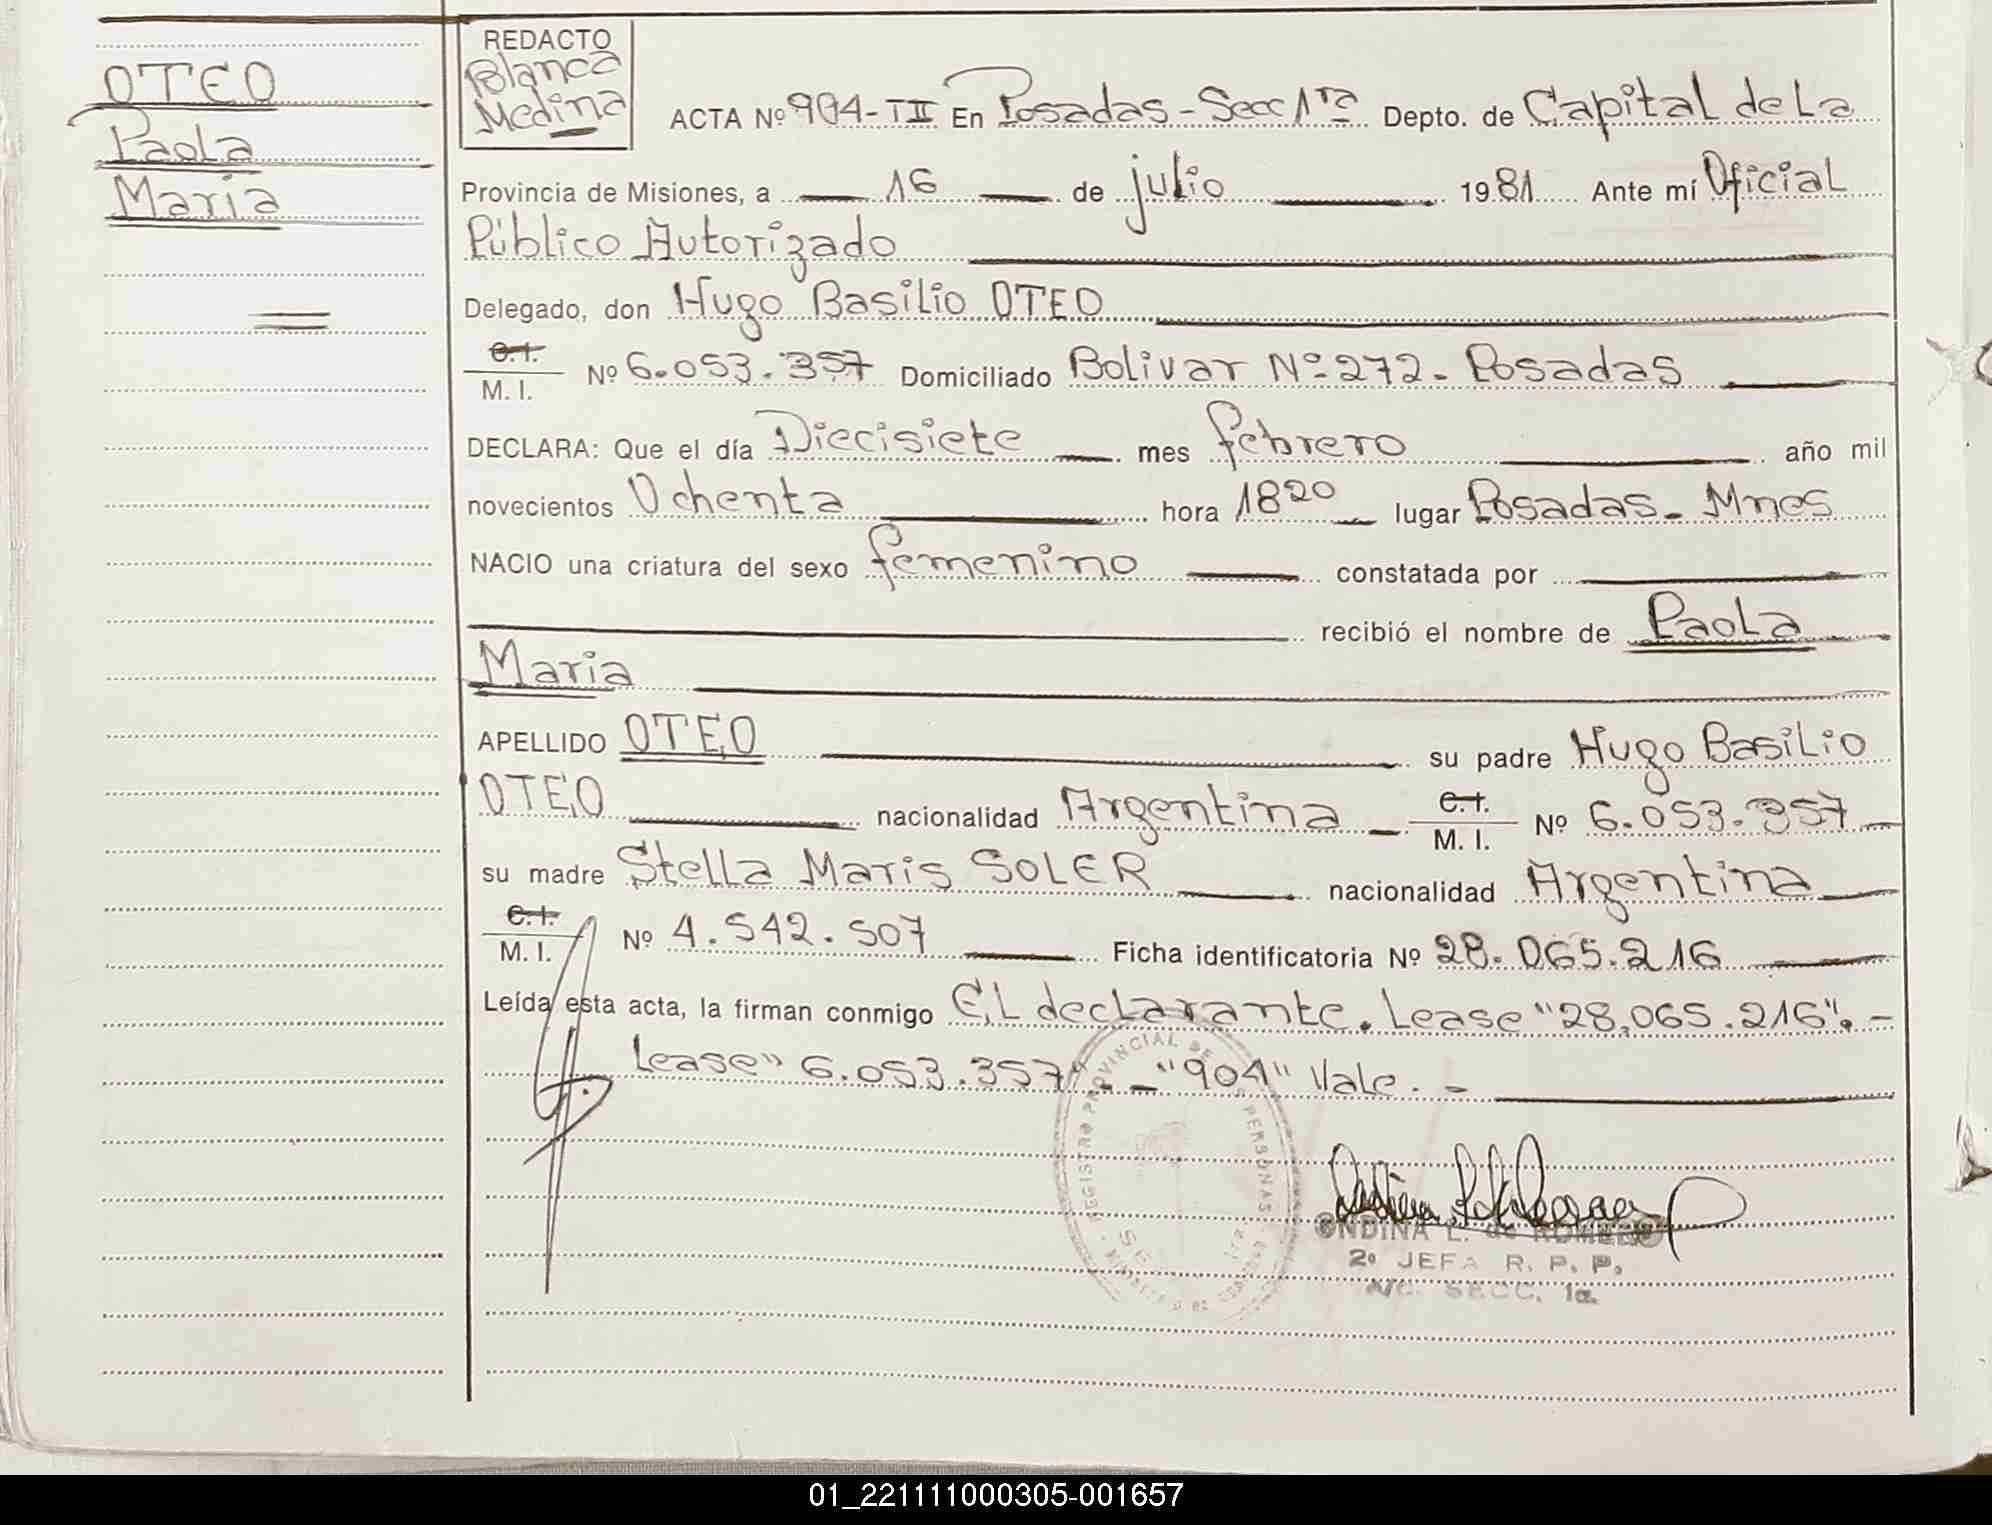 OTEO
Paola
Maria
REDACTO
Blanca
Medina
ACTA Nº 904-III En Posadas-Secc 1ra Depto. de Capital de La
Provincia de Misiones, a 16 de julio 1981 Ante mí Oficial
Público Autorizado
Delegado, don Hugo Basilio OTEO
C.I. / M. I. Nº 6.053.357 Domiciliado Bolivar Nº 272- Posadas
DECLARA: Que el día Diecisiete mes febrero año mil
novecientos Ochenta hora 1820 lugar Posadas- Mnes
NACIO una criatura del sexo femenino constatada por
recibió el nombre de Paola
Maria
APELLIDO OTEO su padre Hugo Basilio
OTEO nacionalidad Argentina C.I. / M. I. Nº 6.053.357
su madre Stella Maris SOLER nacionalidad Argentina
C.I. / M. I. Nº 4.542.507 Ficha identificatoria Nº 28.065.216
Leída esta acta, la firman conmigo El declarante. Lease "28,065.216".-
Lease" 6.053.357".- "904" Vale.-
REGISTRO PROVINCIAL DE PERSONAS
ONDINA L. de ROMERO
2º JEFA R. P. P.
A/C. SECC. 1a.
01_221111000305-001657